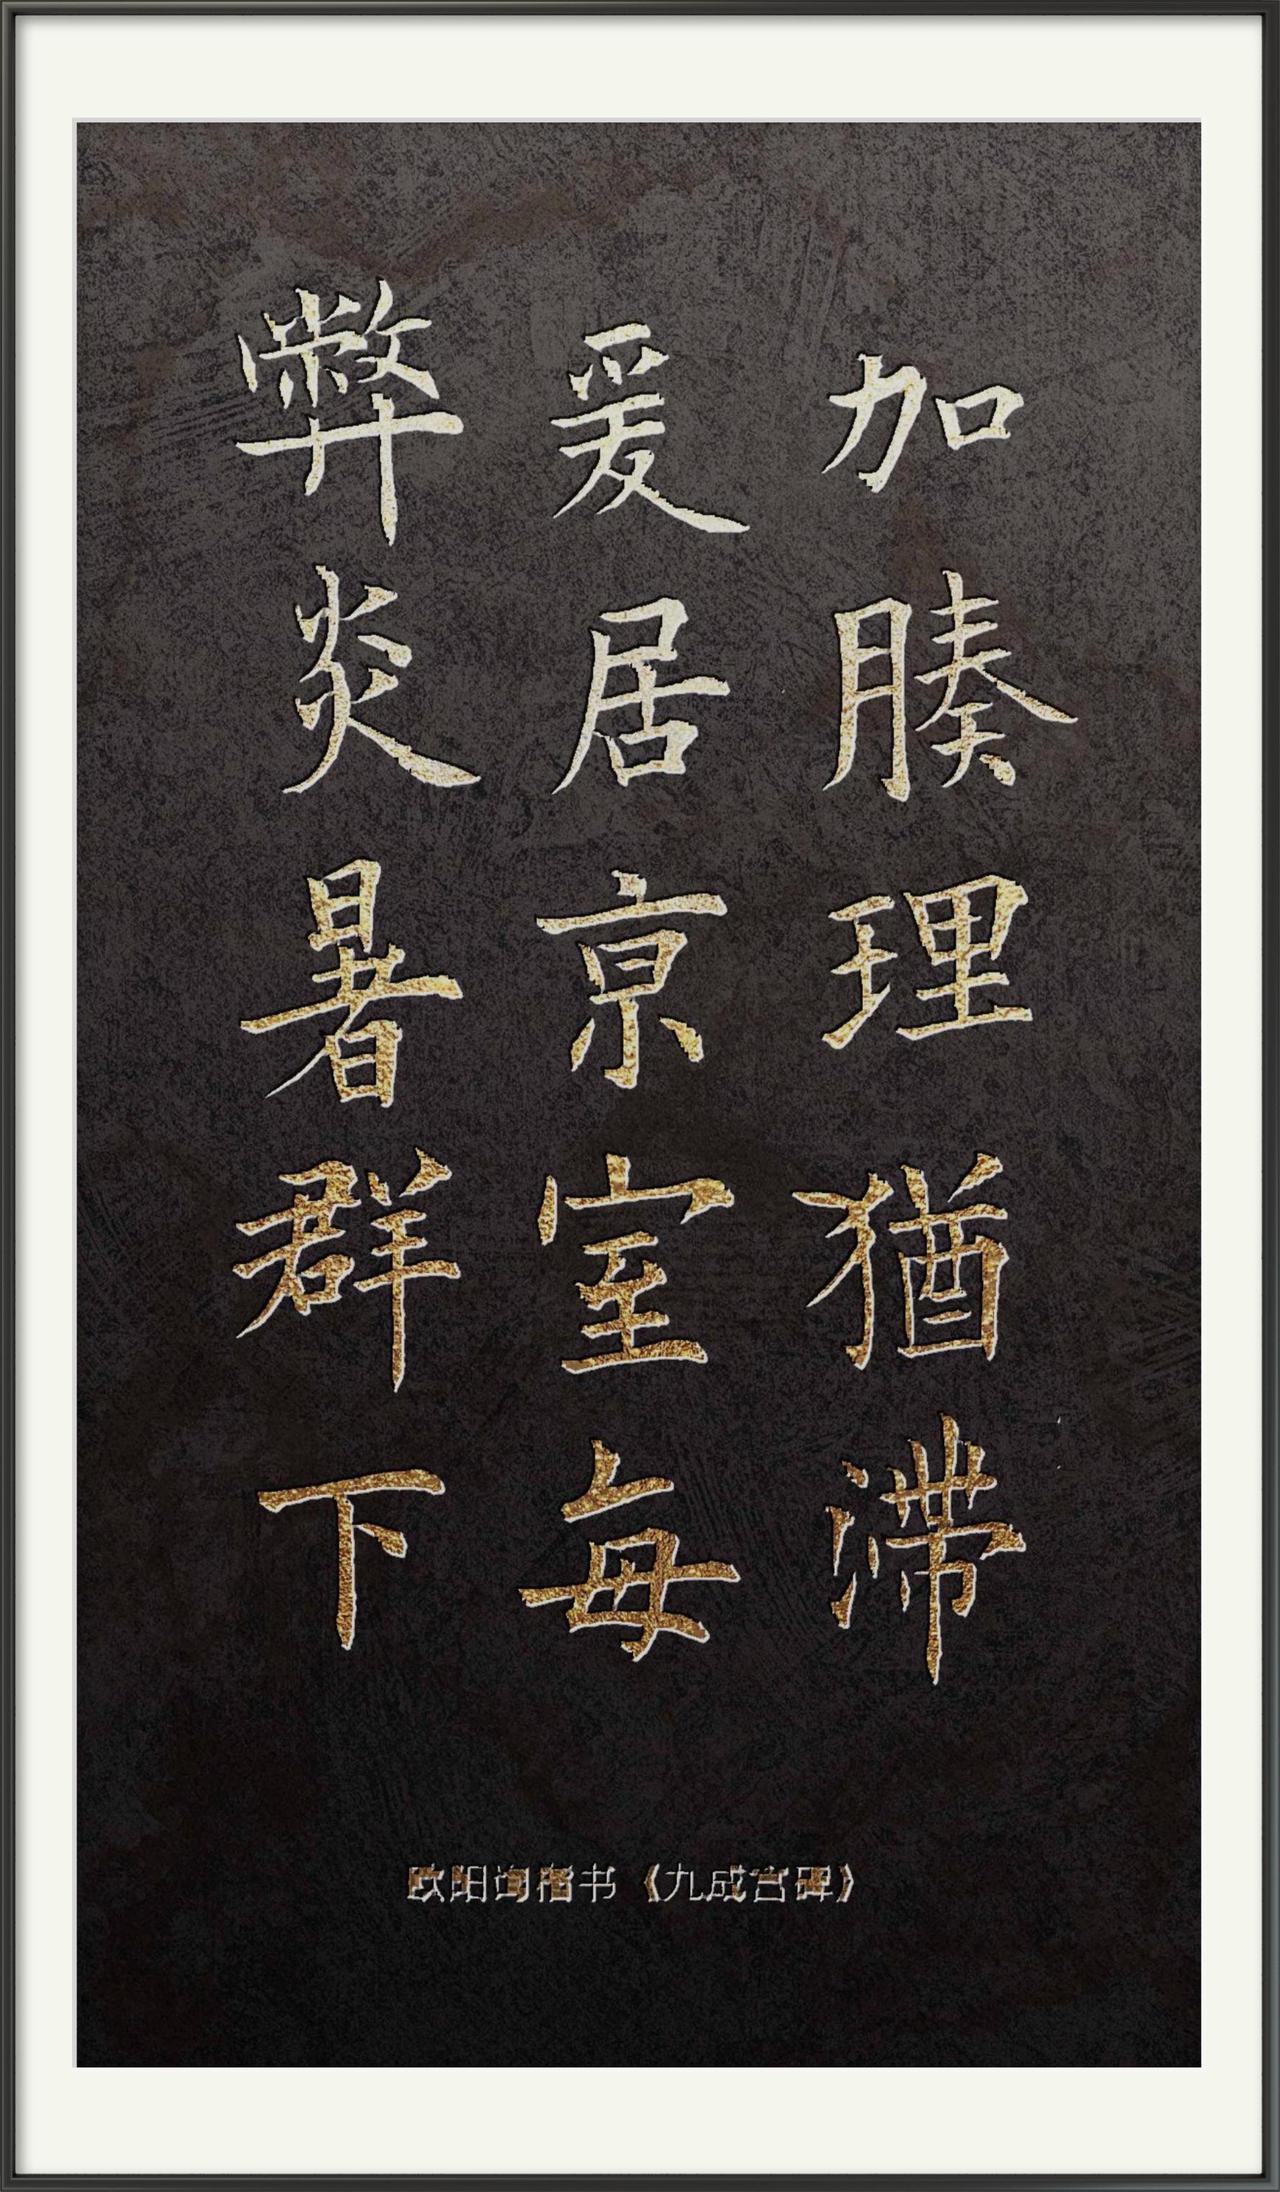 加腠理猶滯
爰居京室每
弊炎暑群下
欧阳询楷书《九成宫碑》